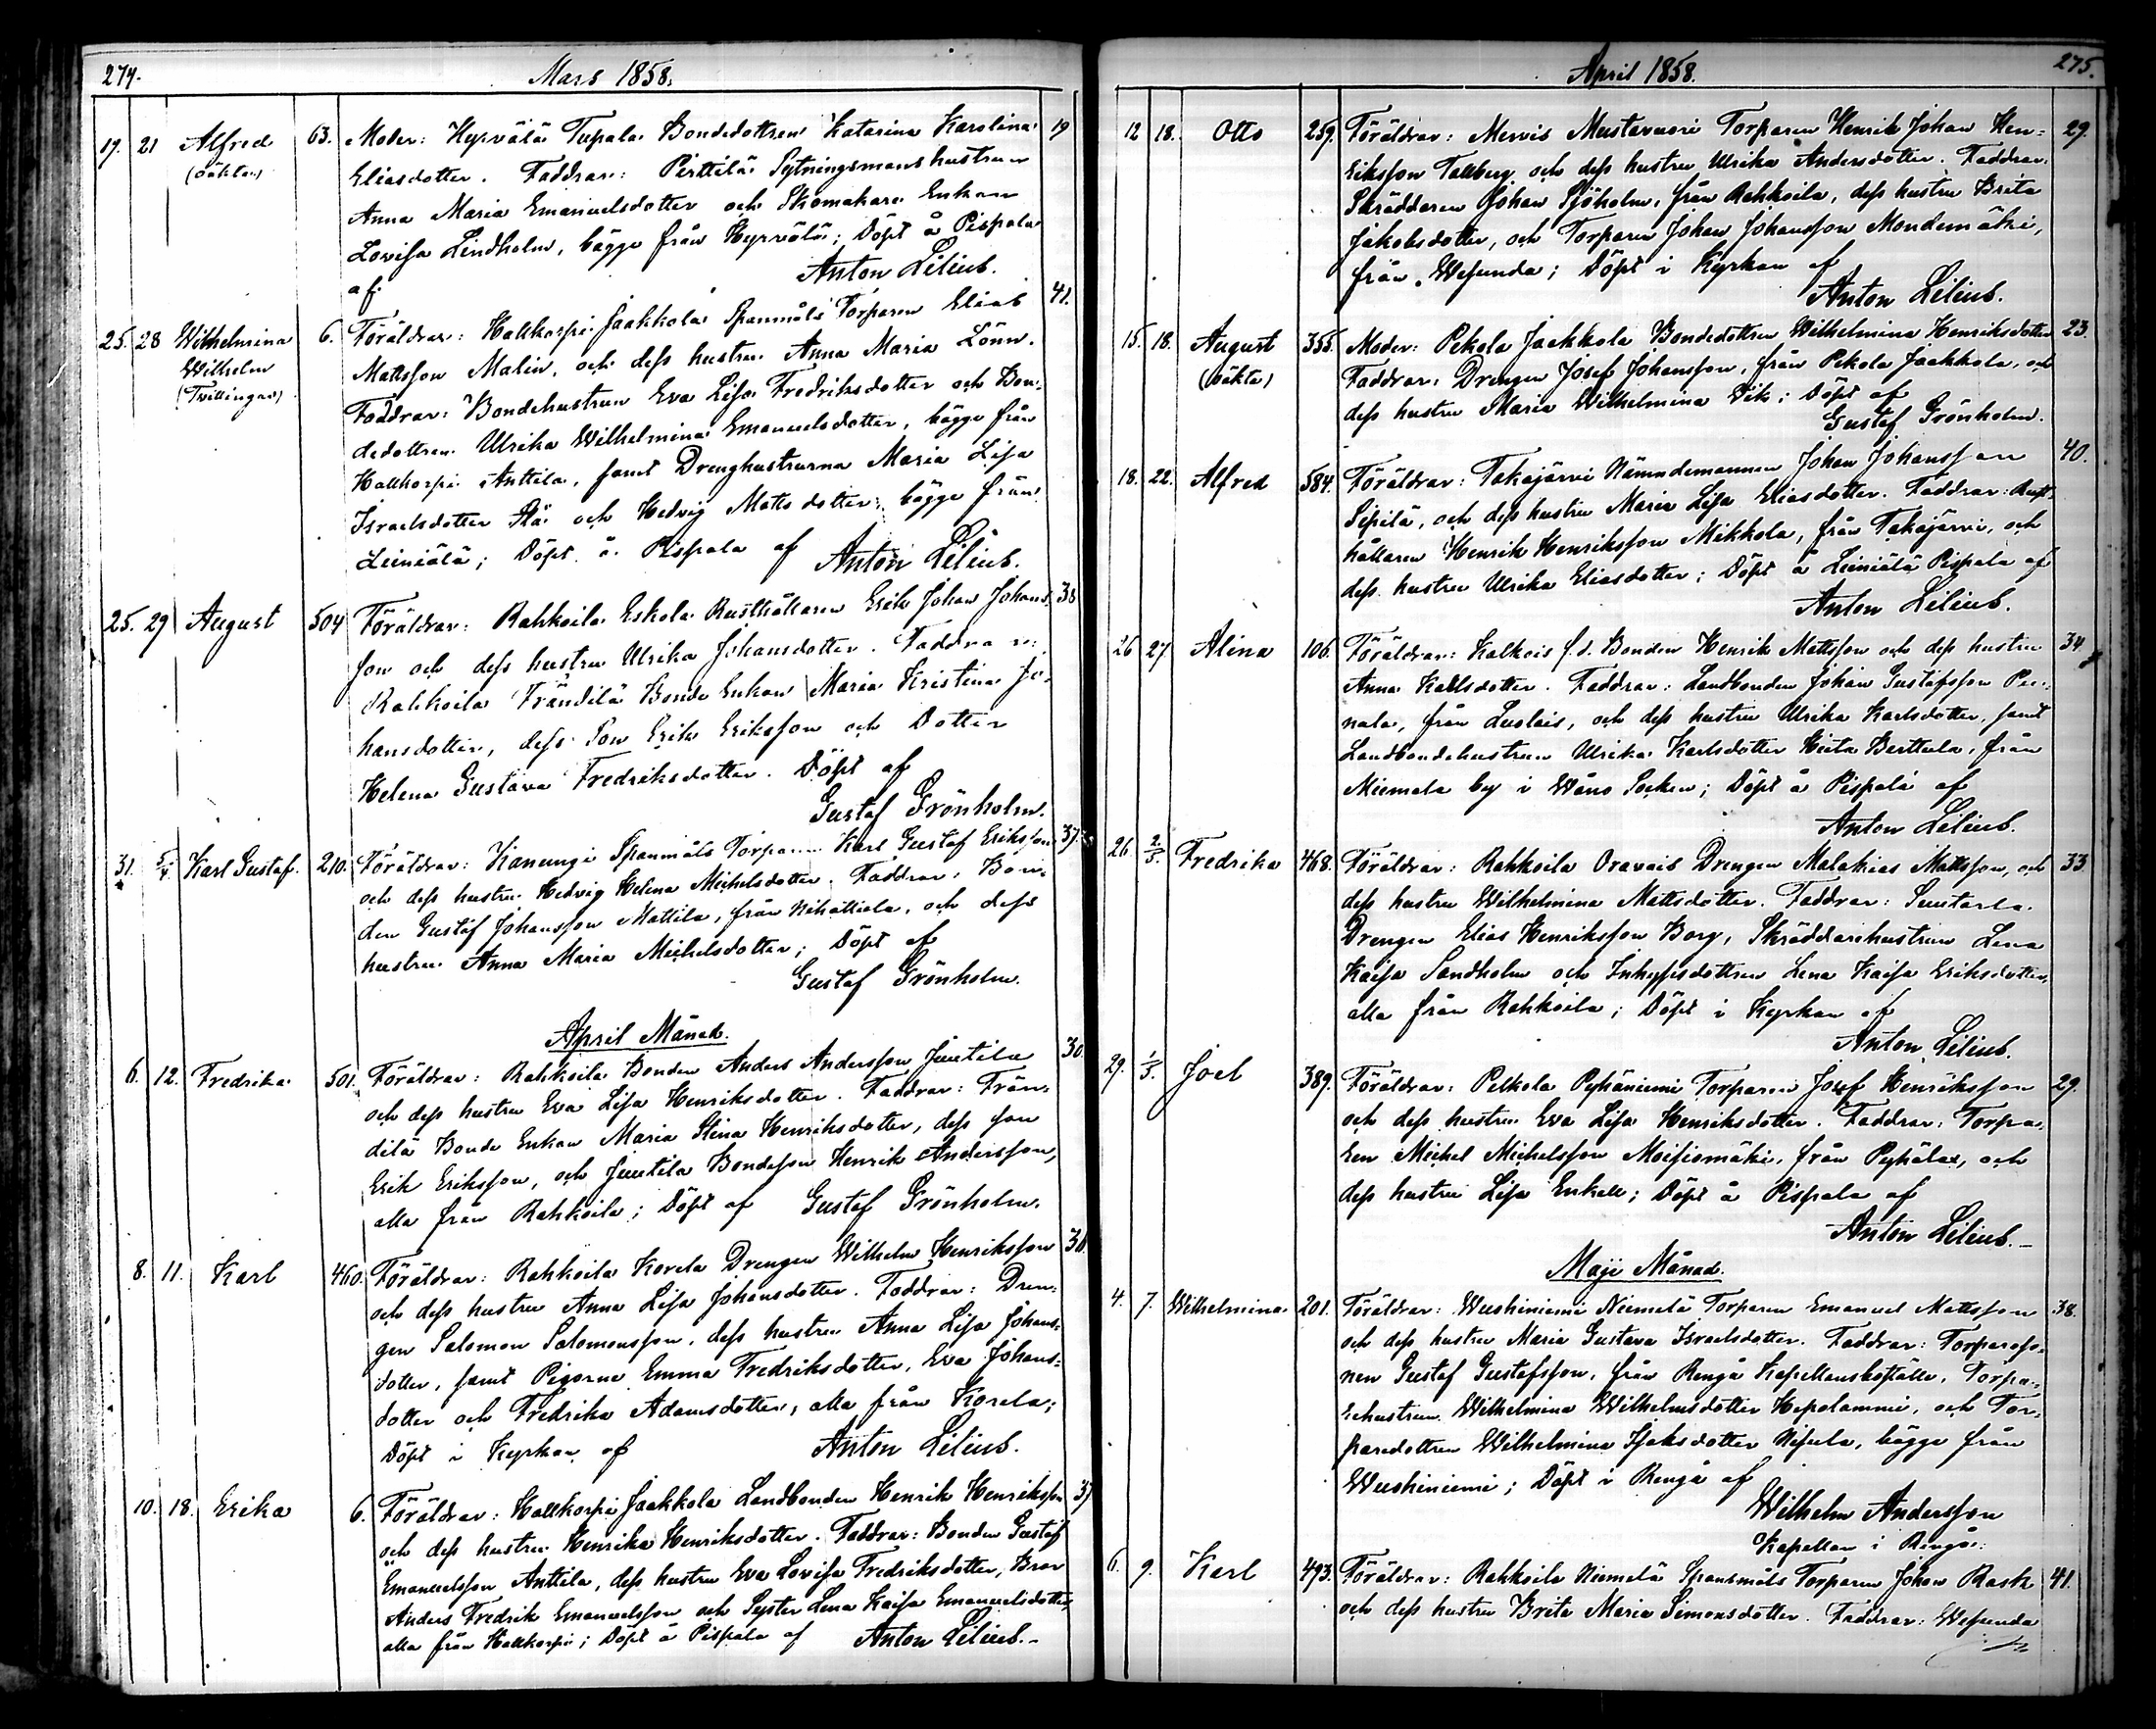 274.
Mars 1858.
19. 21 Alfred 63. Moder: Hyrvälä Tupala Bondedottren Katarina Karolina 19
(oäkta) Eliasdotter. Faddrar: Perttilä Sytningsmanshustrun
Anna Maria Emanuelsdotter och Skomakare Enkan
Lovisa Lindholm, bägge från Hyrvälä; Döpt å Pispala
af Anton Lilius.
25. 28 Wilhelmina 6. Föräldrar: Hallkorpi Jaakkola Spanmåls Torparen Elias 41.
Wilhelm Mattsson Malin, och dess hustru Anna Maria Lönn.
(Tvillingar) Faddrar: Bondehustrun Eva Lisa Fredriksdotter och Bon-
dedottren Ulrika Wilhelmina Emanuelsdotter, bägge från
Hallkorpi Anttila, samt Drenghustrurna Maria Lisa
Israelsdotter och Hedvig Mattsdotter, bägge från
Leiniälä; Döpt å Pispala af Anton Lilius.
25. 29 August 504 Föräldrar: Rahkoila Eskola Rusthållaren Erik Johan Johans- 38
son och dess hustru Ulrika Johansdotter. Faddrar:
Rahkoila Frändilä Bonde Enkan Maria Kristina Jo-
hansdotter, dess Son Erik Eriksson och Dotter
Helena Gustava Fredriksdotter. Döpt af
Gustaf Grönholm.
31. 5/4 Karl Gustaf. 210. Föräldrar: Kanungi Spanmåls Torparen Karl Gustaf Eriksson 37.
och dess hustru Hedvig Helena Michelsdotter. Faddrar: Bon-
den Gustaf Johansson Mattila, från Nihattiala, och dess
hustru Anna Maria Michelsdotter; Döpt af
Gustaf Grönholm.
April Månad.
6. 12. Fredrika 501. Föräldrar: Rahkoila Bonden Anders Andersson Juutila 30.
och dess hustru Eva Lisa Henriksdotter. Faddrar: Frän-
dilä Bonde Enkan Maria Stina Henriksdotter, dess son
Erik Eriksson, och Juutila Bondeson Henrik Andersson,
alla från Rahkoila; Döpt af Gustaf Grönholm.
8. 11. Karl 460. Föräldrar: Rahkoila Korela Drengen Wilhelm Henriksson
och dess hustru Anna Lisa Johansdotter. Faddrar: Dren-
gen Salomon Salomonsson, dess hustru Anna Lisa Johans-
dotter, samt Pigorna Emma Fredriksdotter, Eva Johans-
dotter och Fredrika Adamsdotter, alla från Korela;
Döpt i Kyrkan af Anton Lilius.
10. 18. Erika 6. Föräldrar: Hallkorpi Jaakkola Landbonden Henrik Henriksson 37
och dess hustru Henrika Henriksdotter. Faddrar: Bonden Gustaf
Emanuelsson Anttila, dess hustru Eva Lovisa Fredriksdotter, Bror
Anders Fredrik Emanuelsson och Syster Lena Kaisa Emanuelsdotter,
alla från Hallkorpi; Döpt å Pispala af Anton Lilius.
April 1858.
275.
12 18. Otto 259. Föräldrar: Mervis Mustavuori Torparen Henrik Johan Hen- 29.
riksson Tallberg och dess hustru Ulrika Andersdotter. Faddrar:
Skräddaren Johan Sjöholm, från Rahkoila, dess hustru Brita
Jakobsdotter, och Torparen Johan Johansson Mondemäki,
från Wesunda; Döpt i Kyrkan af
Anton Lilius.
15. 18. August 355. Moder: Pekola Jaakkola Bondedottren Wilhelmina Henriksdotter 23.
(oäkta) Faddrar: Drengen Josef Johansson, från Pekola Jaakkola, och
dess hustru Maria Wilhelmina Vik; Döpt af
Gustaf Grönholm.
18. 22. Alfred 584. Föräldrar: Takajärvi Nämndemannen Johan Johansson 40.
Sipilä, och dess hustru Maria Lisa Eliasdotter. Faddrar: Rust-
hållaren Henrik Henriksson Mikkola, från Takajärvi, och
dess hustru Ulrika Eliasdotter; Döpt å Leiniälä Pispala af
Anton Lilius.
26 27 Alina 106. Föräldrar: Kalkois f.d. Bonden Henrik Mattsson och dess hustru 34
Anna Karlsdotter. Faddrar: Landbonden Johan Gustafsson Pen-
nala, från Luolais, och dess hustru Ulrika Karlsdotter, samt
Landbondehustrun Ulrika Karlsdotter Hiita Berttula, från
Miemala by i Wånå Socken; Döpt å Pispala af
Anton Lilius.
26 2/5. Fredrika 468. Föräldrar: Rahkoila Oravais Drengen Malakias Mattsson, och 33
dess hustru Wilhelmina Mattsdotter. Faddrar: Suutarla
Drengen Elias Henriksson Borg, Skräddarehustrun Lena
Kaisa Sandholm och Inhysesdottren Lena Kaisa Eriksdotter,
alla från Rahkoila; Döpt i Kyrkan af
Anton Lilius.
29. 1/5. Joel 389. Föräldrar: Pelkola Pyhäniemi Torparen Josef Henriksson 29.
och dess hustru Eva Lisa Henriksdotter. Faddrar: Torpa-
ren Michel Michelsson Moisiomäki, från Pyhälax, och
dess hustru Lisa Enkell; Döpt å Pispala af
Anton Lilius.
Maji Månad.
4. 7. Wilhelmina 201. Föräldrar: Wuohiniemi Niemelä Torparen Emanuel Mattsson 38.
och dess hustru Maria Gustava Israelsdotter. Faddrar: Torpareso-
nen Gustaf Gustafsson, från Rengå Kapellansboställe, Torpa-
rehustrun Wilhelmina Wilhelmsdotter Hepolammi, och Tor-
paredottren Wilhelmina Isaksdotter Nisula, bägge från
Wuohiniemi; Döpt i Rengå af
Wilhelm Andersson
Kapellan i Rengå.
6. 9. Karl 493. Föräldrar: Rahkoila Niemelä Spanmåls Torparen Johan Rask 41.
och dess hustru Brita Maria Simonsdotter. Faddrar: Wesunda